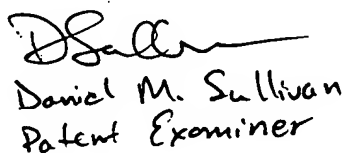 DSull
Daniel M. Sullivan
Patent Examiner